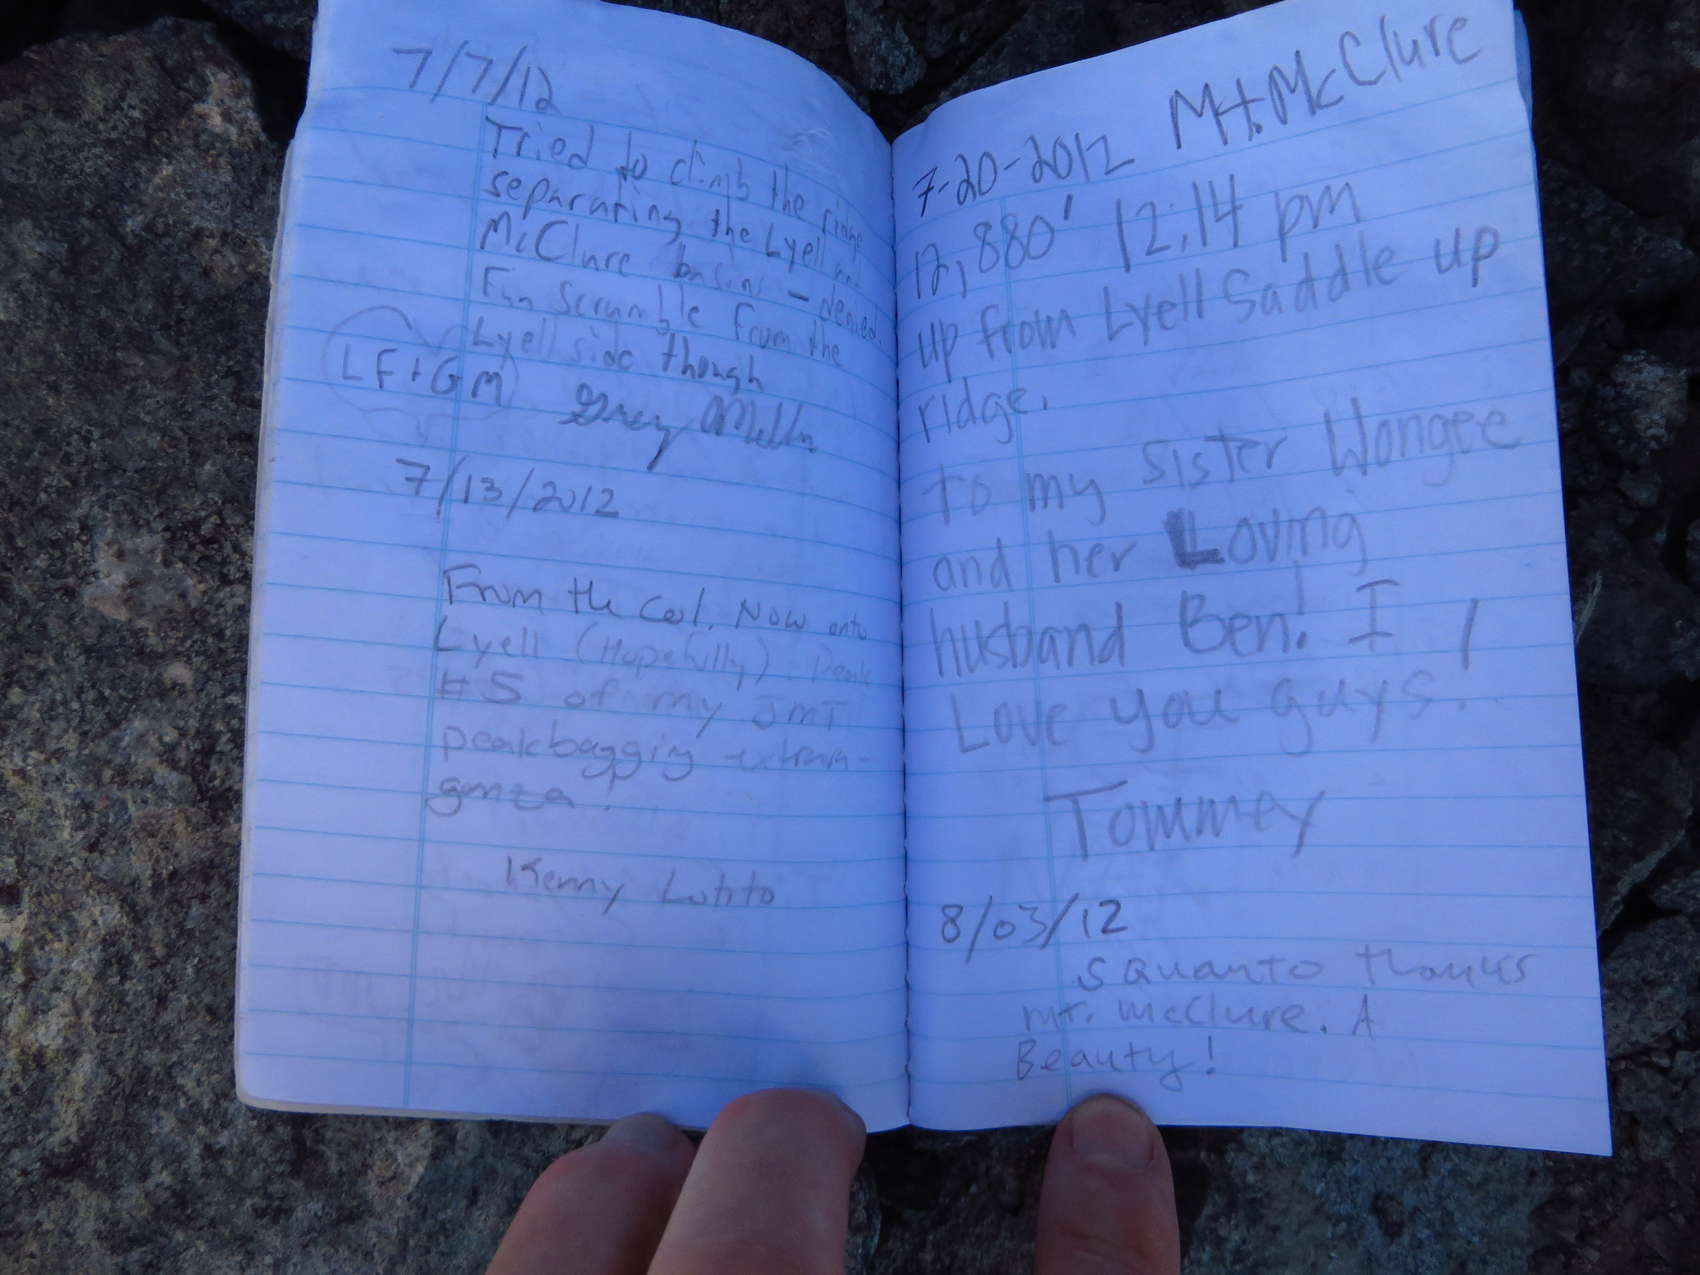 7/7/12
Tried to climb the ridge
separating the Lyell and
McClure basins - denied.
Fun Scramble from the
Lyell side though
LF + GM Greg
7/13/2012
From the Col. Now onto
Lyell (Hopefully). Peak
#5 of my JMT
peakbagging extrava-
ganza!
Kenny
Mt. McClure
7-20-2012
12,880' 12:14 pm
up from Lyell Saddle up
ridge.
to my sister Wongee
and her Loving
husband Ben! I
Love you guys!
Tommey
8/03/12
Squanto thanks
Mt. McClure. A
Beauty!